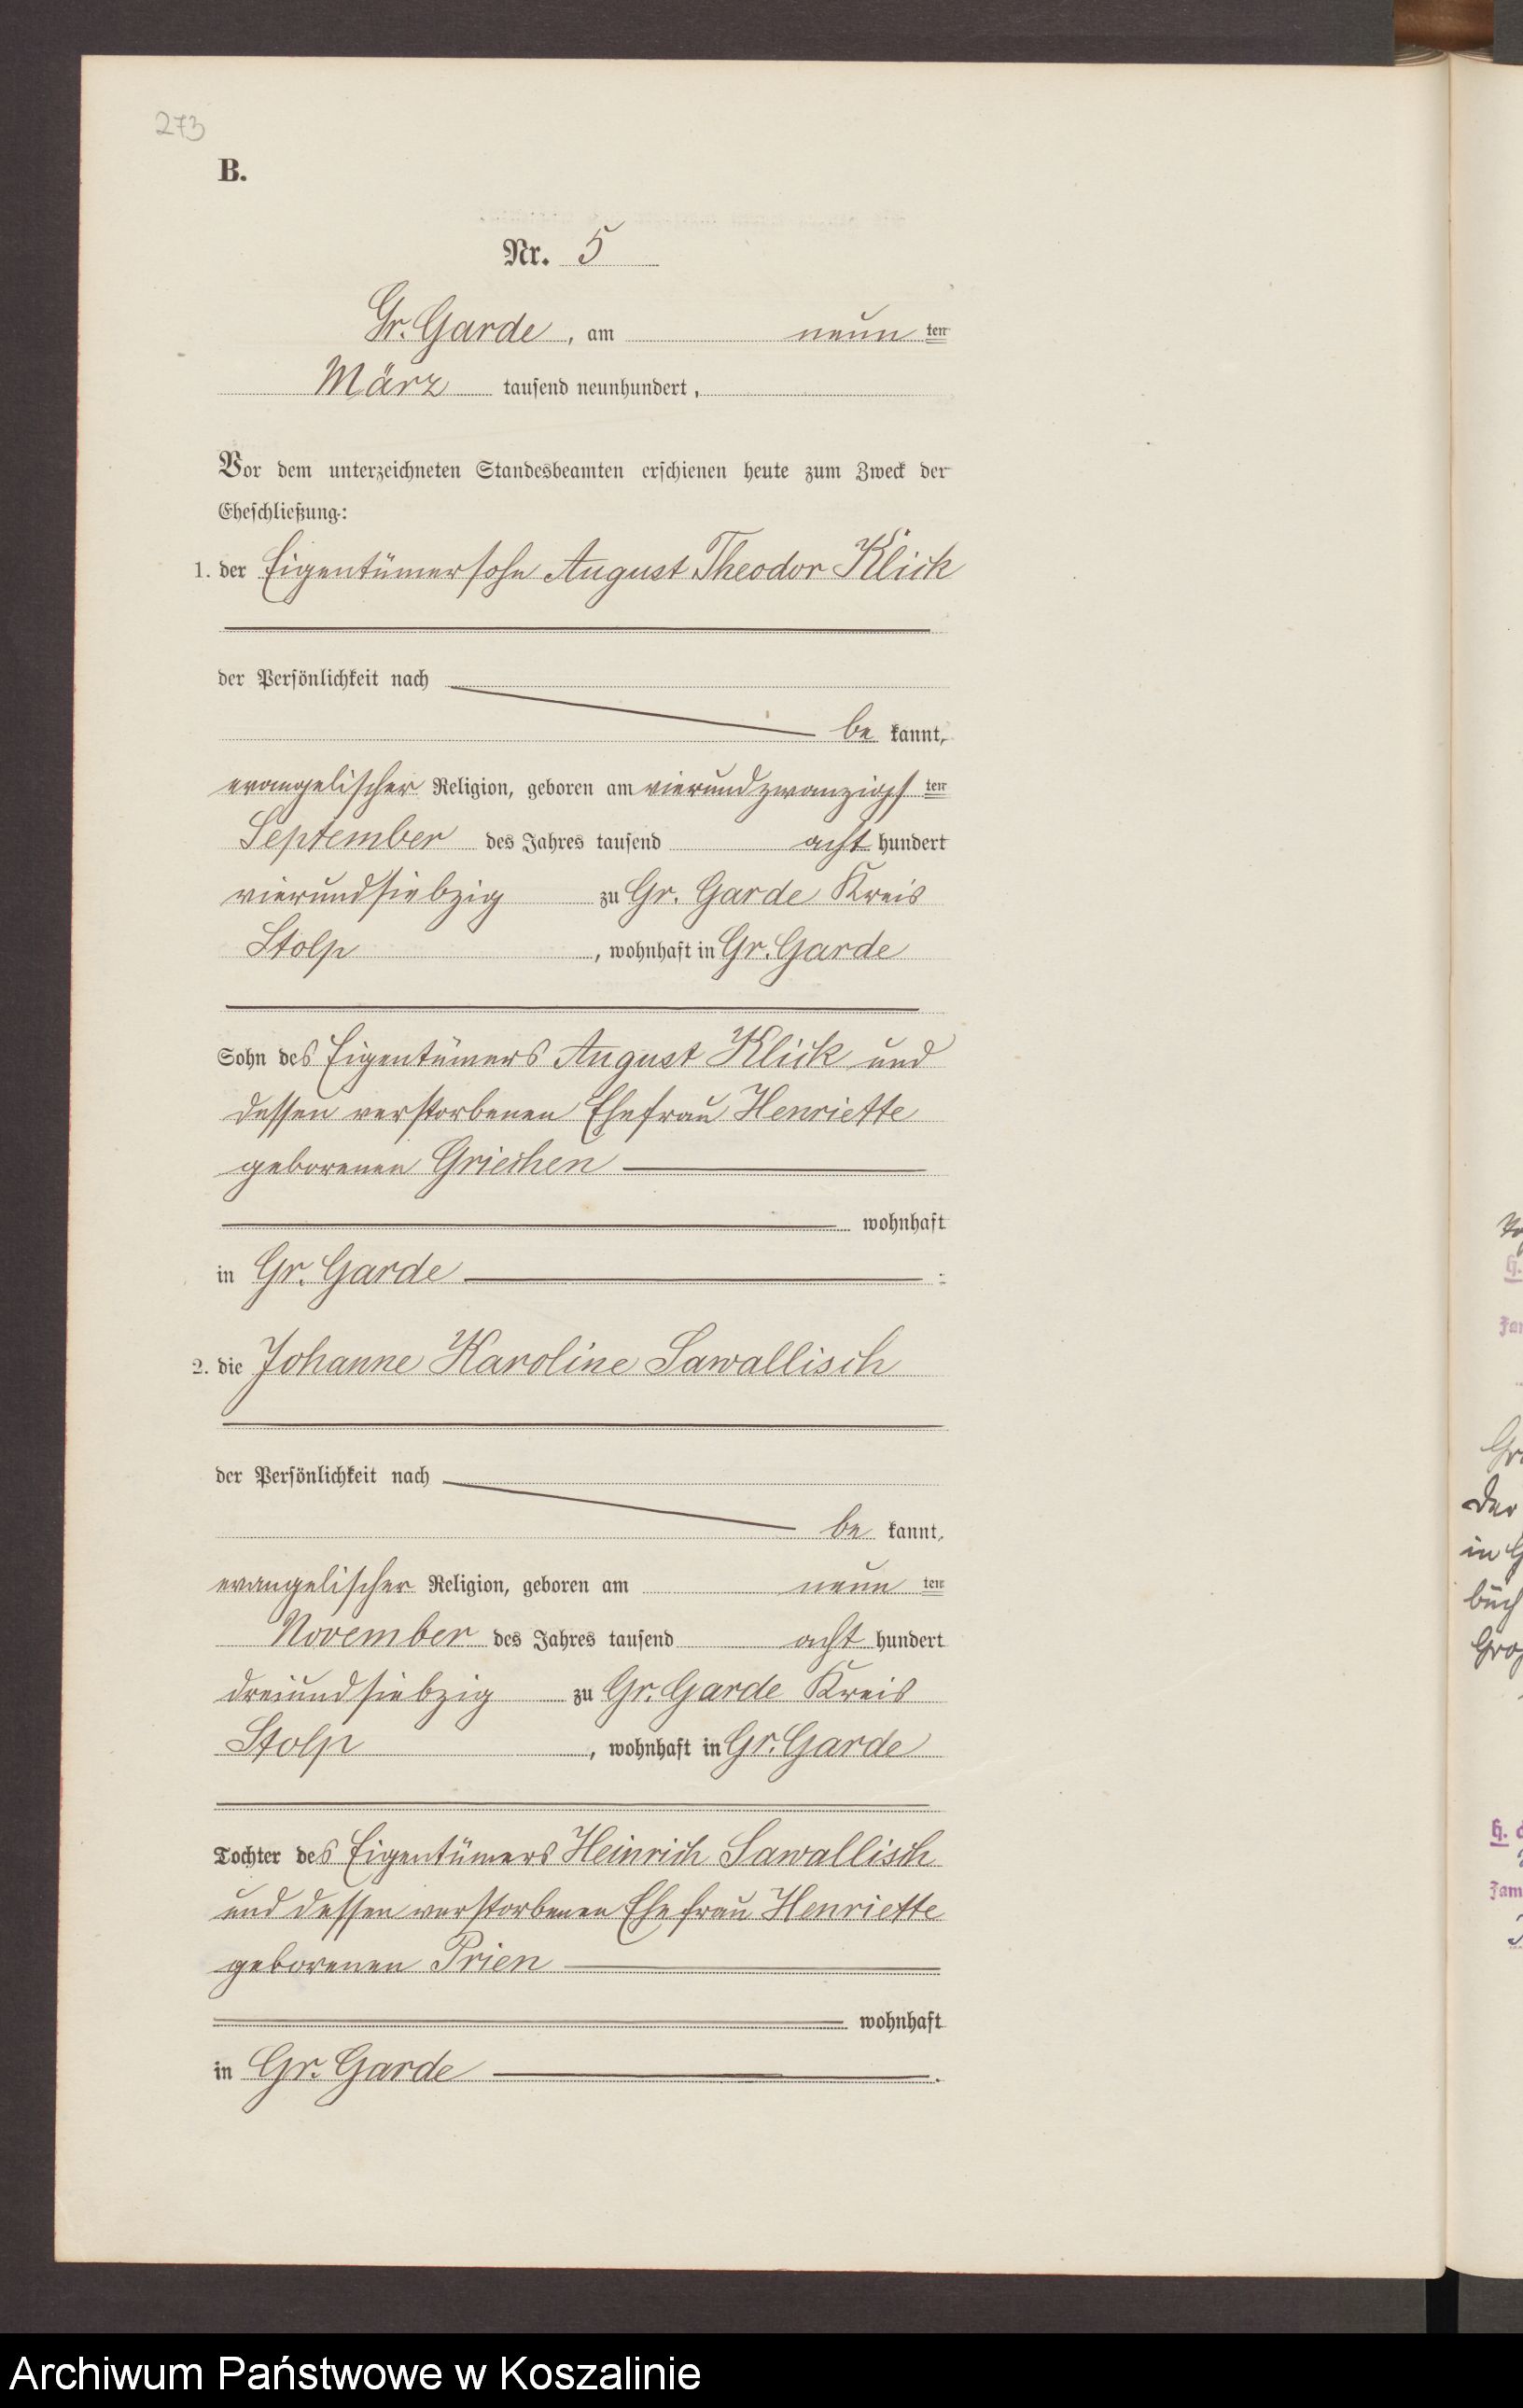 273
B.
Nr. 5
Gr. Garde, am neun ten
März tausend neunhundert,
Vor dem unterzeichneten Standesbeamten erschienen heute zum Zweck der
Eheschließung:
1. der Eigentümersohn August Theodor Klick
der Persönlichkeit nach
be kannt,
evangelischer Religion, geboren am vierundzwanzigs ten
September des Jahres tausend acht hundert
vierundsiebzig zu Gr. Garde Kreis
Stolp, wohnhaft in Gr. Garde
Sohn des Eigentümers August Klick und
dessen verstorbenen Ehefrau Henriette
geborenen Griechen
wohnhaft
in Gr. Garde
2. die Johanne Karoline Sawallisch
der Persönlichkeit nach
be kannt,
evangelischer Religion, geboren am neun ten
November des Jahres tausend acht hundert
dreiundsiebzig zu Gr. Garde Kreis
Stolp, wohnhaft in Gr. Garde
Tochter des Eigentümers Heinrich Sawallisch
und dessen verstorbenen Ehefrau Henriette
geborenen Prien
wohnhaft
in Gr. Garde.
Der
in G
Archiwum Państwowe w Koszalinie